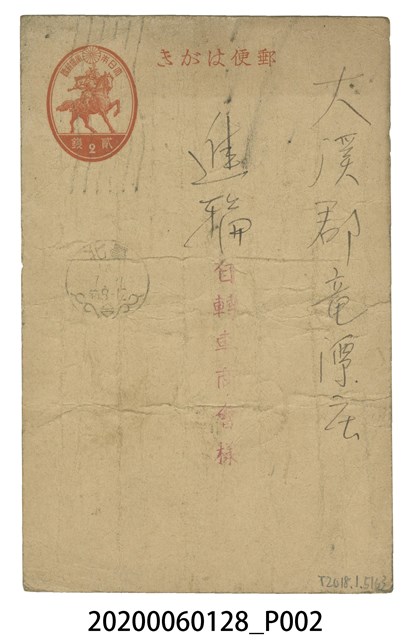 郵便はがき
大日本帝國郵便
貳 2 錢
大溪郡竜潭庄
進輪
自轉車商會
T2018.1.5163
20200060128_P002